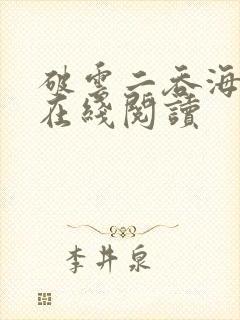 破雲二吞海
在綫閱讀
李井泉